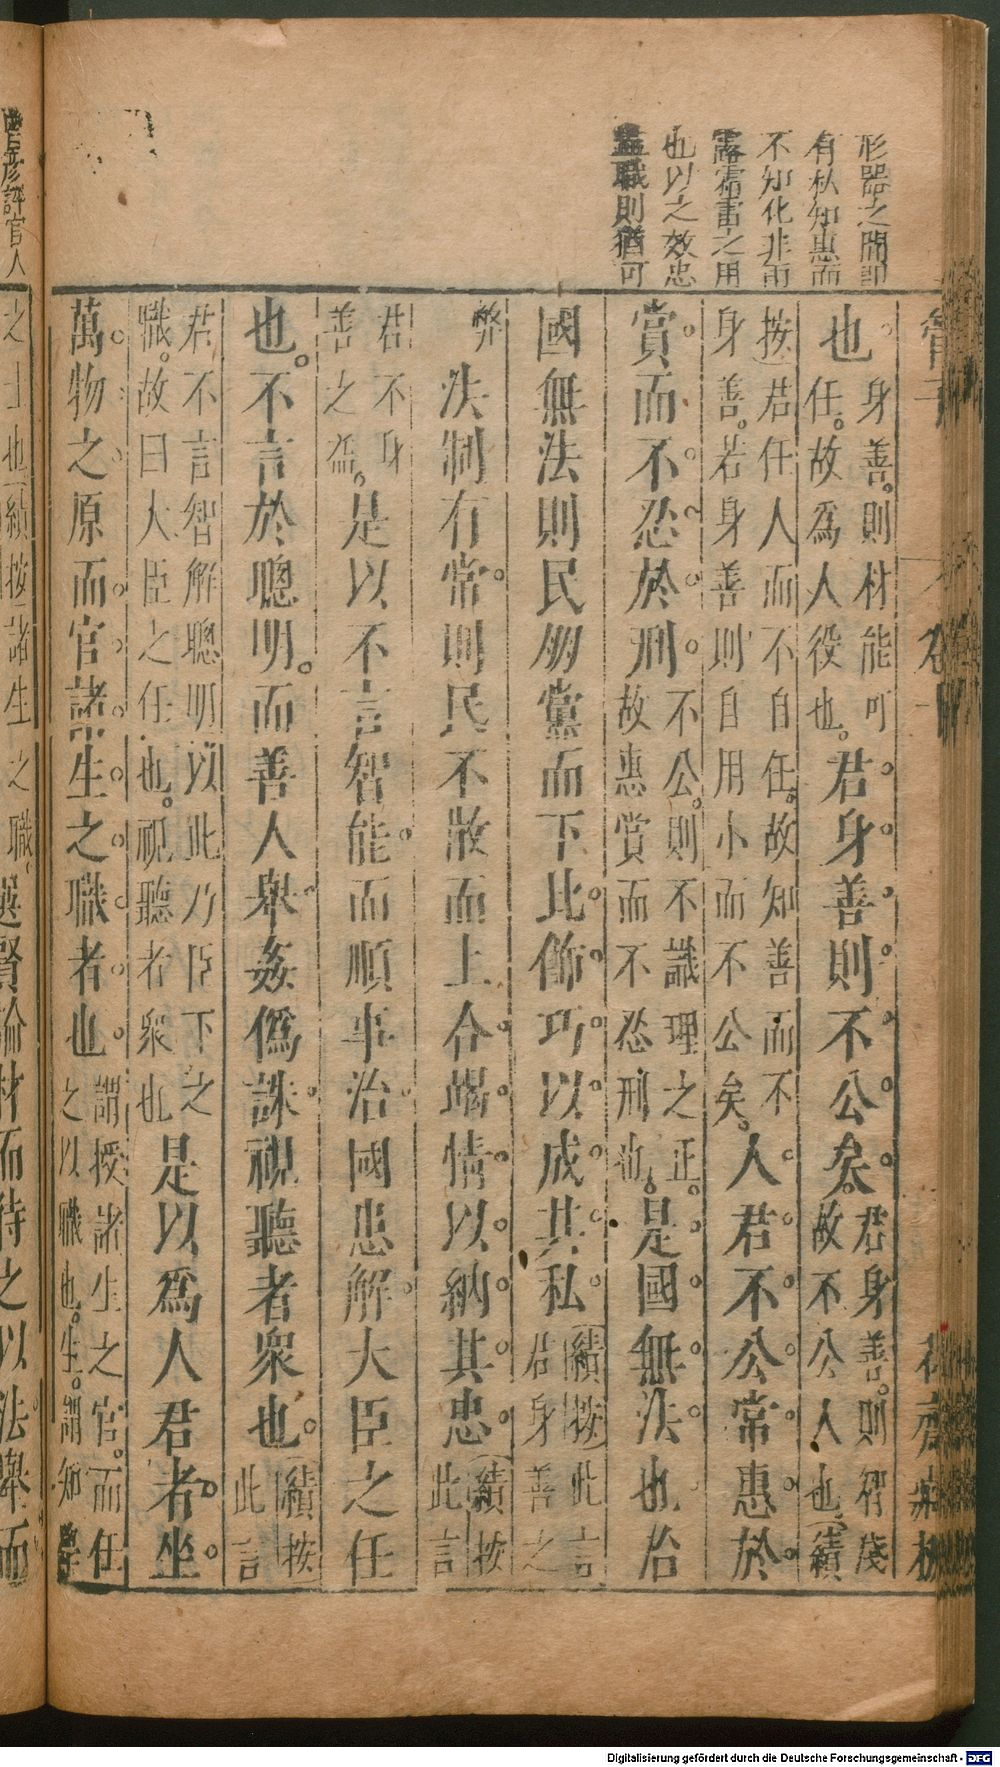 形器之間卽
有私知惠而
不知化非雨
露霜雷之用
也以之效忠
盡職則猶可
管子 卷十 花齋藏板
也。身善。則材能可
任。故爲人役也。君身善。則不公矣。君身善。則智淺
故不公人也(續
按)君任人而不自任。故知善而不
身善。若身善則自用小而不公矣。人君不公。常惠於
賞。而不忍於刑。不公。則不識理之正。
故惠賞而不忍刑也。是國無法也治
國無法則民朋黨而下比。飾巧以成其私。(續按)此言
君身善之
弊
法制有常。則民不散而上合。竭情以納其忠。(續按)
此言
君不身
善之益。是以不言智能。而順事治國患解。大臣之任
也。不言於聰明。而善人舉。姦僞誅。視聽者衆也。(續按)
此言
君不言智解聰明以此乃臣下之
職。故曰大臣之任也。視聽者衆也是以爲人君者。坐。
萬物之原。而官諸生之職者也。謂授諸生之官。而任
之以職也。生。謂知學
之士也(續按)諸生之職。選賢論材而待之以法舉而
評官人
Digitalisierung gefördert durch die Deutsche Forschungsgemeinschaft - DFG